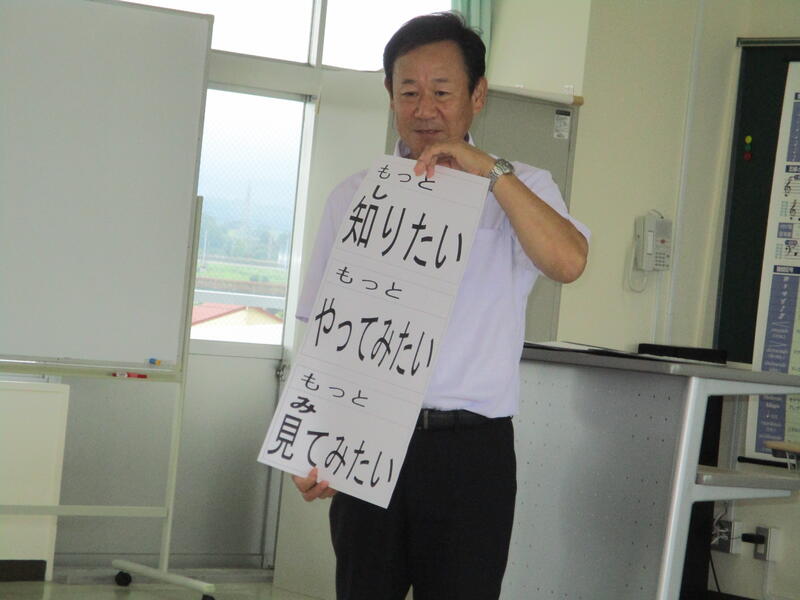 もっと
し
知りたい
もっと
やってみたい
もっと
み
見てみたい